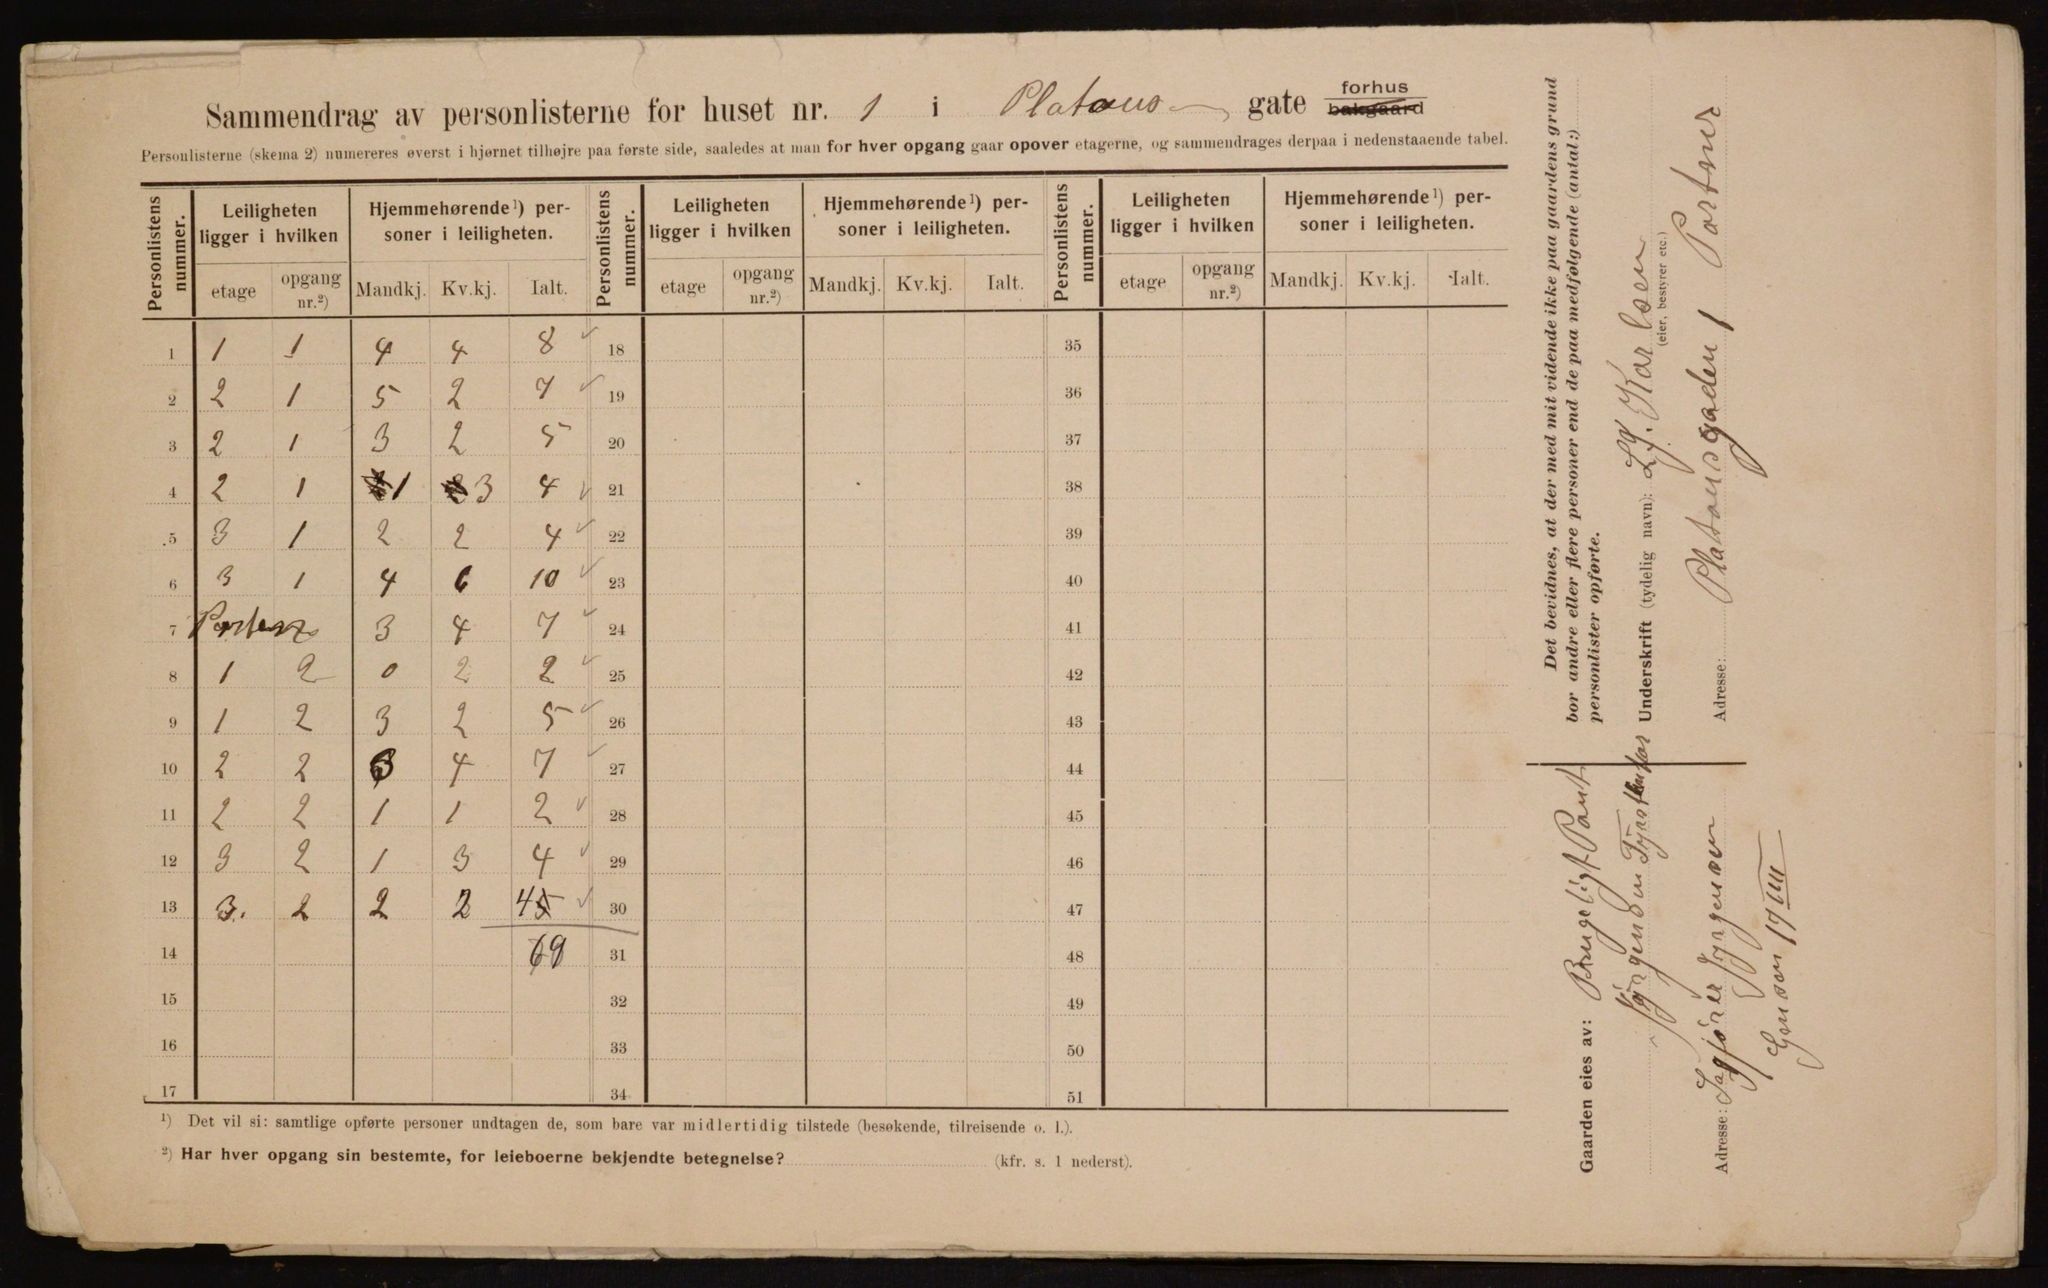 Sammendrag av personlisterne for huset nr. 1 i Platous gate forhus bakgaard
Personlisterne (skema 2) numereres øverst i hjørnet tilhøjre paa første side, saaledes at man for hver opgang gaar opover etagerne, og sammendrages derpaa i nedenstaaende tabel.
Personlistens nummer. Leiligheten ligger i hvilken Hjemmehørende¹) personer i leiligheten. Personlistens nummer. Leiligheten ligger i hvilken Hjemmehørende¹) personer i leiligheten. Personlistens nummer. Leiligheten ligger i hvilken Hjemmehørende¹) personer i leiligheten.
etage opgang nr.²) Mandkj. Kv.kj. Ialt. etage opgang nr.²) Mandkj. Kv.kj. Ialt. etage opgang nr.²) Mandkj. Kv.kj. Ialt.
1 1 1 4 4 8 18 35
2 2 1 5 2 7 19 36
3 2 1 3 2 5 20 37
4 2 1 1 3 4 21 38
5 3 1 2 2 4 22 39
6 3 1 4 6 10 23 40
7 3 4 7 24 41
8 1 2 0 2 2 25 42
9 1 2 3 2 5 26 43
10 2 2 3 4 7 27 44
11 2 2 1 1 2 28 45
12 3 2 1 3 4 29 46
13 3. 2 2 2 4 30 47
14 69 31 48
15 32 49
16 33 50
17 34 51
¹) Det vil si: samtlige opførte personer undtagen de, som bare var midlertidig tilstede (besøkende, tilreisende o. l.).
²) Har hver opgang sin bestemte, for leieboerne bekjendte betegnelse? (kfr. s. 1 nederst).
Det bevidnes, at der med mit vidende ikke paa gaardens grund
bor andre eller flere personer end de paa medfølgende (antal:)
personlister opførte.
Underskrift (tydelig navn): Karlsen
(eier, bestyrer etc.)
Adresse: Platousgaden 1 Portner
Gaarden eies av:
Adresse: Sagfører Jørgensen